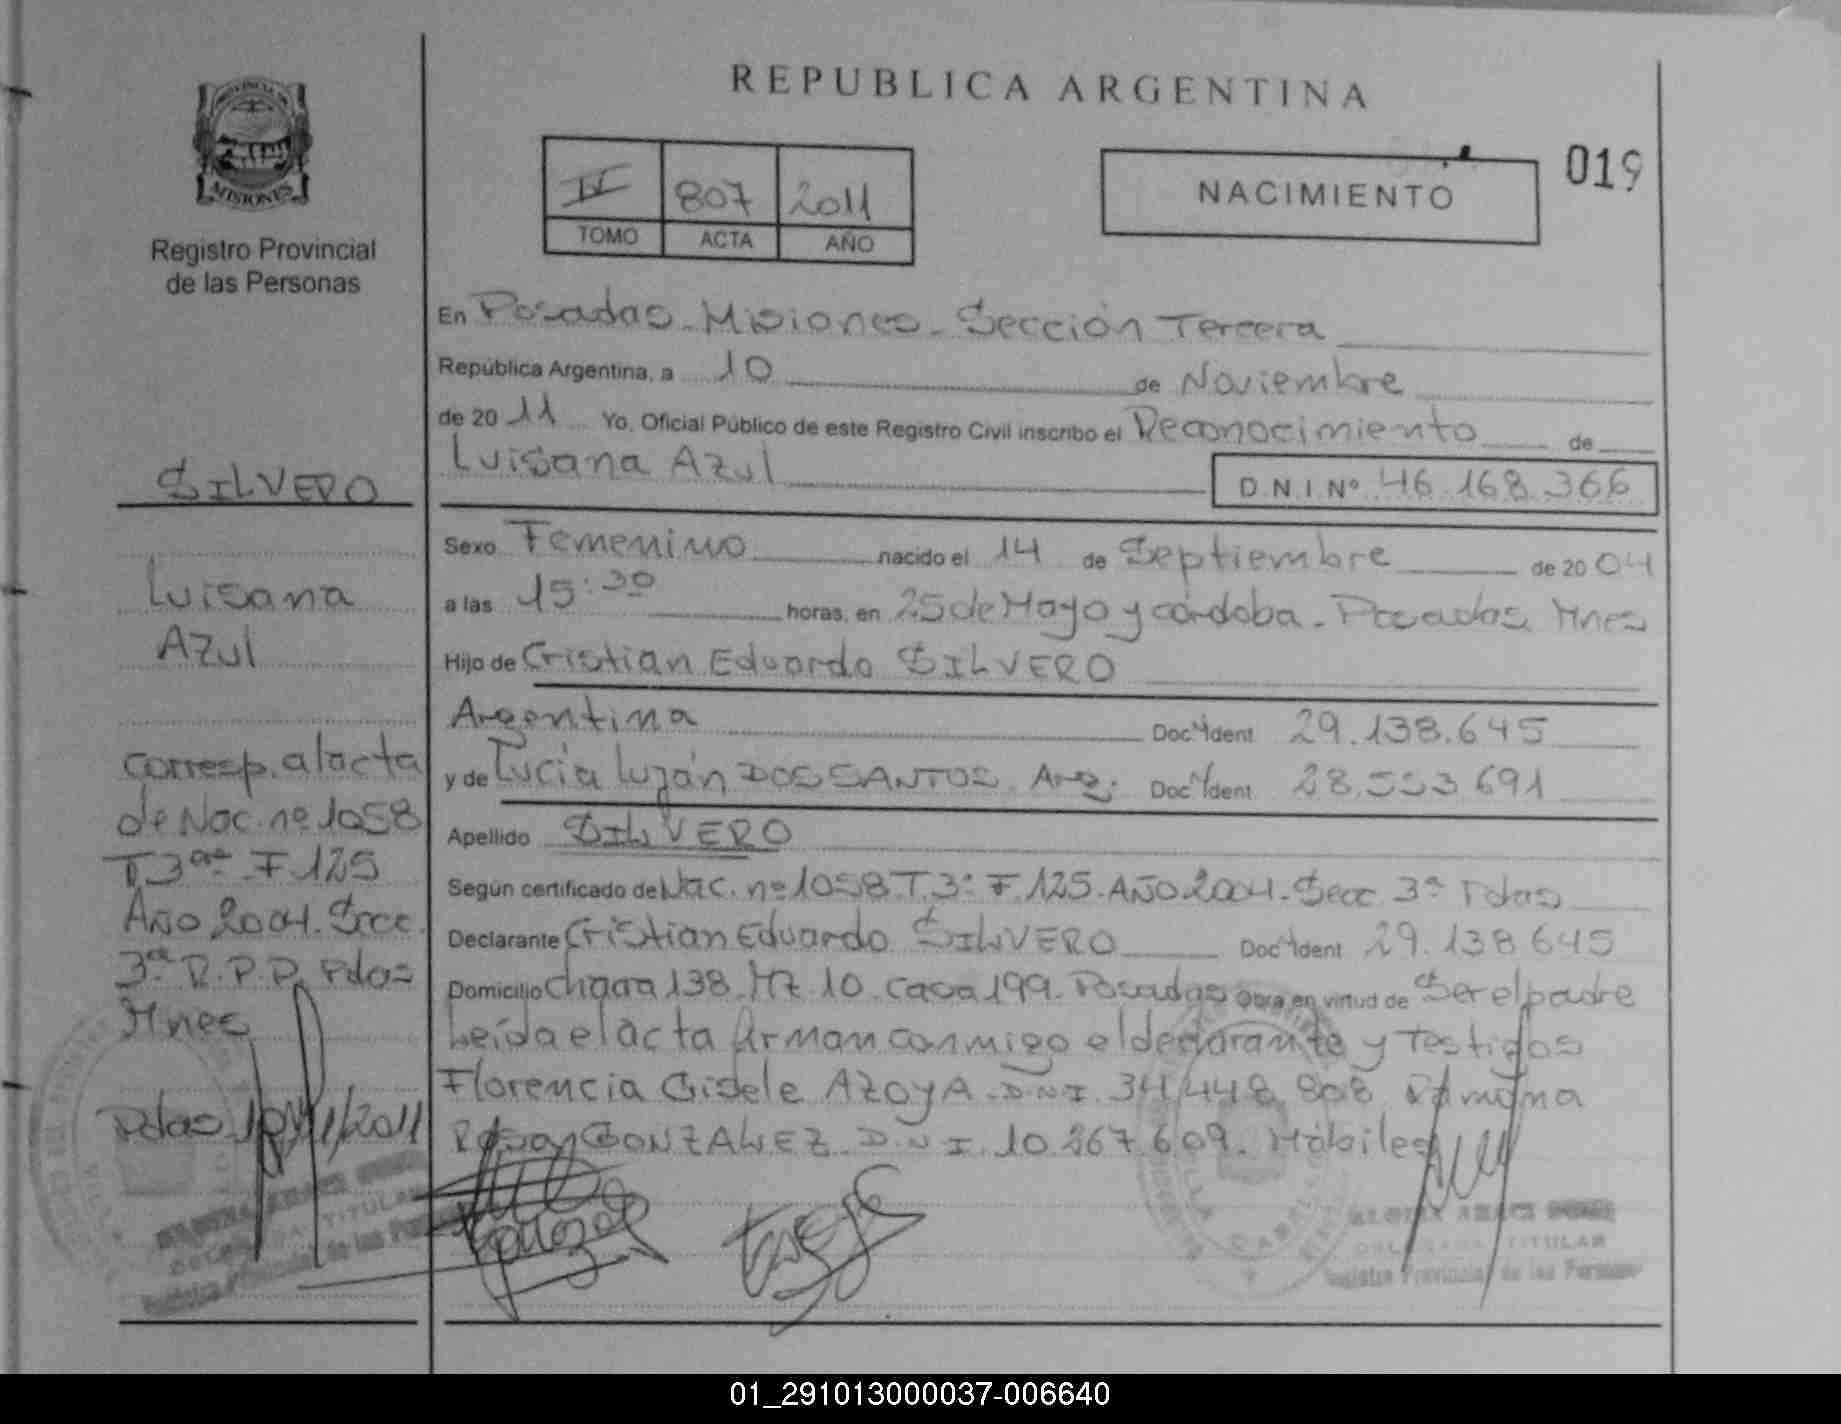 REPUBLICA ARGENTINA
PROVINCIA DE
MISIONES
Registro Provincial
de las Personas
807 2011
TOMO ACTA AÑO
NACIMIENTO
019
En Posadas - Misiones - Sección Tercera
República Argentina, a 10 de Noviembre
de 2011 Yo, Oficial Público de este Registro Civil inscribo el Reconocimiento de
Luisana Azul
D.N.I Nº 46.168.366
SILVERO
Luisana
Azul
Sexo Femenino nacido el 14 de Septiembre de 2004
a las 15:30 horas, en 25 de Mayo y córdoba - Posadas Mnes
Hijo de Cristian Eduardo SILVERO
Argentina Doc. Ident 29.138.645
y de Lucía Luján DOS SANTOS Arg. Doc. Ident 28.553.691
Apellido SILVERO
Según certificado de Nac. nº 1058 T. 3º F. 125. AÑO 2004 - Secc. 3ª Pdas
Declarante Cristian Eduardo SILVERO Doc. Ident 29.138.645
Domicilio Chacra 138. Mz. 10. Casa 199. Posadas Obra en virtud de Ser el padre
Leída el acta firman conmigo el declarante y Testigos
Florencia Gisele AZOYA - D.N.I. 34.448.808 Ramona
GONZALEZ D.N.I. 10.267.609. Hábiles
corresp. al acta
de Nac. nº 1058
T. 3º F. 125
Año 2004. Secc.
3ª R.P.P. Pdas
Mnes
Pdas 10/11/2011
TITULAR
Registro Provincial de las Personas
TITULAR
Registro Provincial de las Personas
01_291013000037-006640